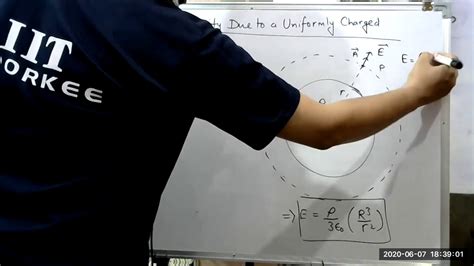 IIT
ORKEE
ty Due to a Uniformly Charged
A E
P
r
E =
⇒ E = ρ/3ε₀ (R³/r²)
2020-06-07 18:39:01